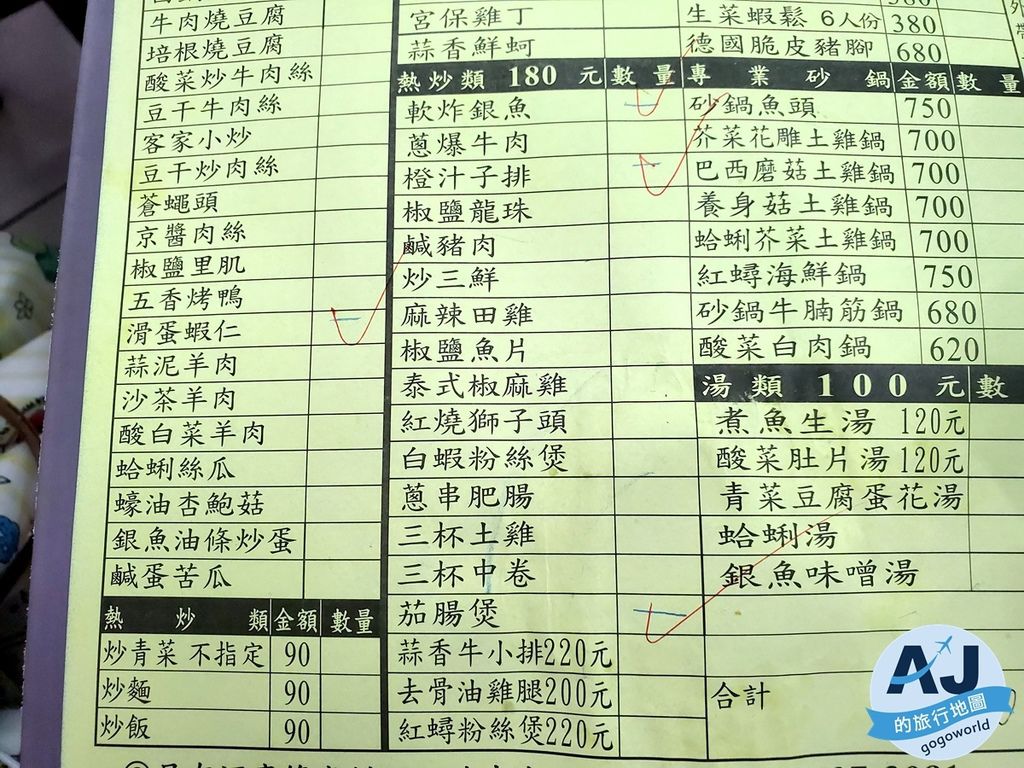 牛肉燒豆腐
培根燒豆腐
酸菜炒牛肉絲
豆干牛肉絲
客家小炒
豆干炒肉絲
蒼蠅頭
京醬肉絲
椒鹽里肌
五香烤鴨
滑蛋蝦仁
蒜泥羊肉
沙茶羊肉
酸白菜羊肉
蛤蜊絲瓜
蠔油杏鮑菇
銀魚油條炒蛋
鹹蛋苦瓜
熱炒類 金額 數量
炒青菜 不指定 90
炒麵 90
炒飯 90
宮保雞丁
蒜香鮮蚵
熱炒類 180 元 數量
軟炸銀魚
蔥爆牛肉
橙汁子排
椒鹽龍珠
鹹豬肉
炒三鮮
麻辣田雞
椒鹽魚片
泰式椒麻雞
紅燒獅子頭
白蝦粉絲煲
蔥串肥腸
三杯土雞
三杯中卷
茄腸煲
蒜香牛小排220元
去骨油雞腿200元
紅蟳粉絲煲220元
生菜蝦鬆 6人份 380
德國脆皮豬腳 680
專業砂鍋 金額 數量
砂鍋魚頭 750
芥菜花雕土雞鍋 700
巴西磨菇土雞鍋 700
養身菇土雞鍋 700
蛤蜊芥菜土雞鍋 700
紅蟳海鮮鍋 750
砂鍋牛腩筋鍋 680
酸菜白肉鍋 620
湯類 100 元 數
煮魚生湯 120元
酸菜肚片湯 120元
青菜豆腐蛋花湯
蛤蜊湯
銀魚味噌湯
合計
AJ
的旅行地圖
gogoworld